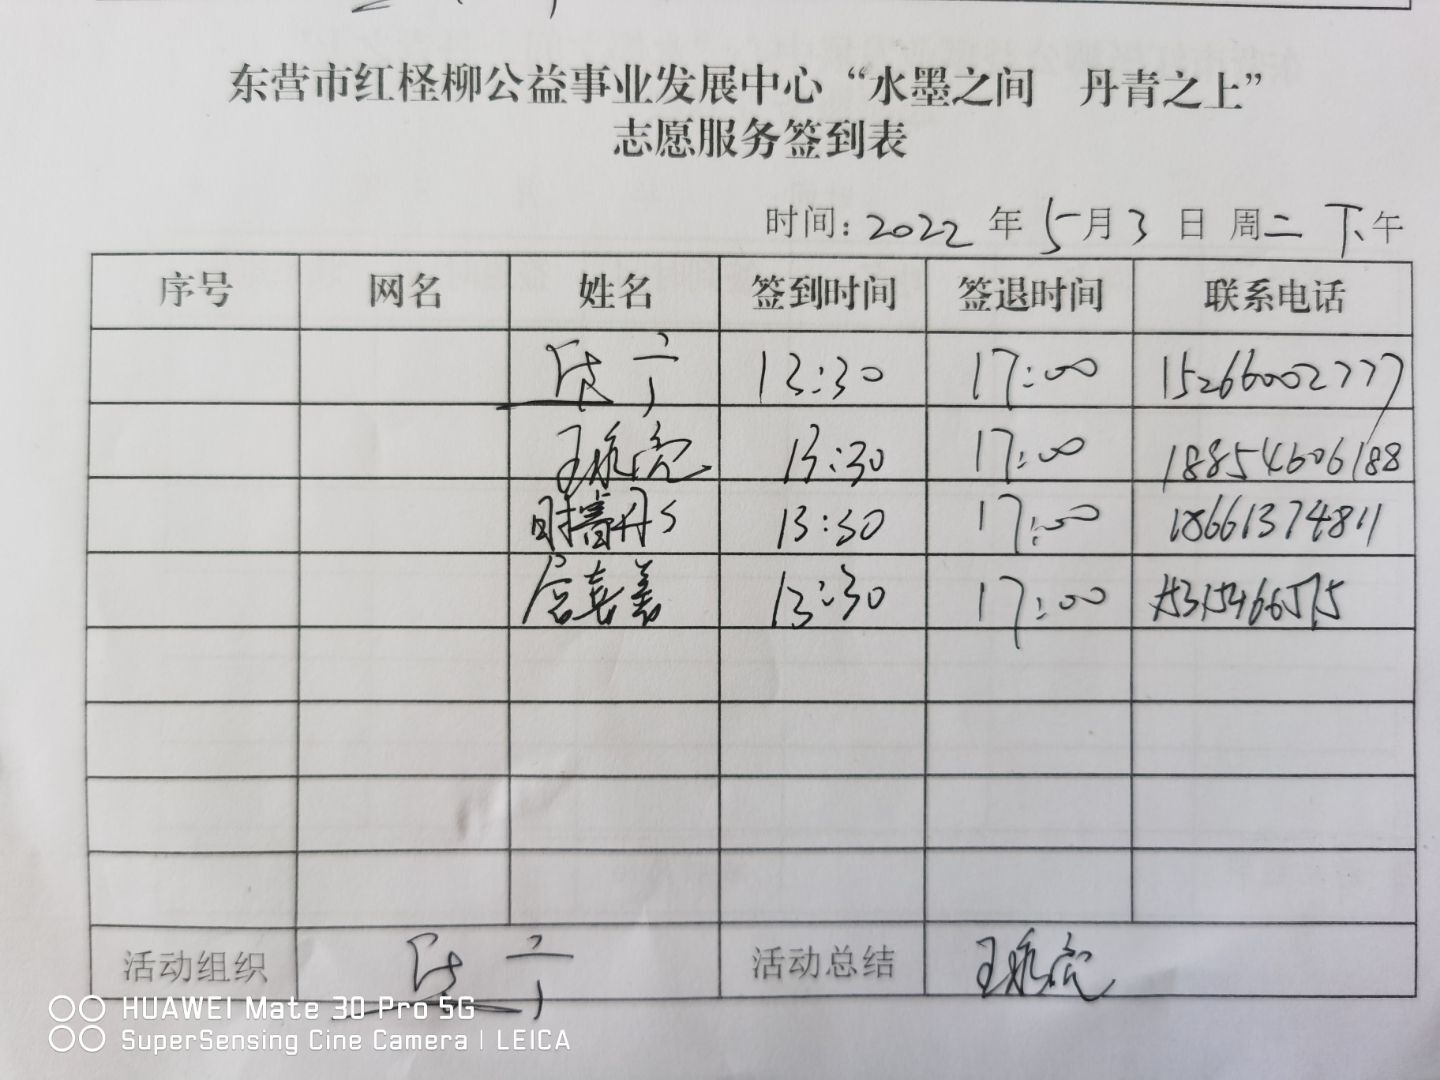 东营市红柽柳公益事业发展中心“水墨之间 丹青之上”
志愿服务签到表
时间: 2022 年 5月 3 日 周二 下午
序号 网名 姓名 签到时间 签退时间 联系电话
13:30 17:00 15266002777
13:30 17:00 18854606188
13:30 17:00 18661374811
13:30 17:00 15315466515
活动组织 活动总结
HUAWEI Mate 30 Pro 5G
SuperSensing Cine Camera | LEICA